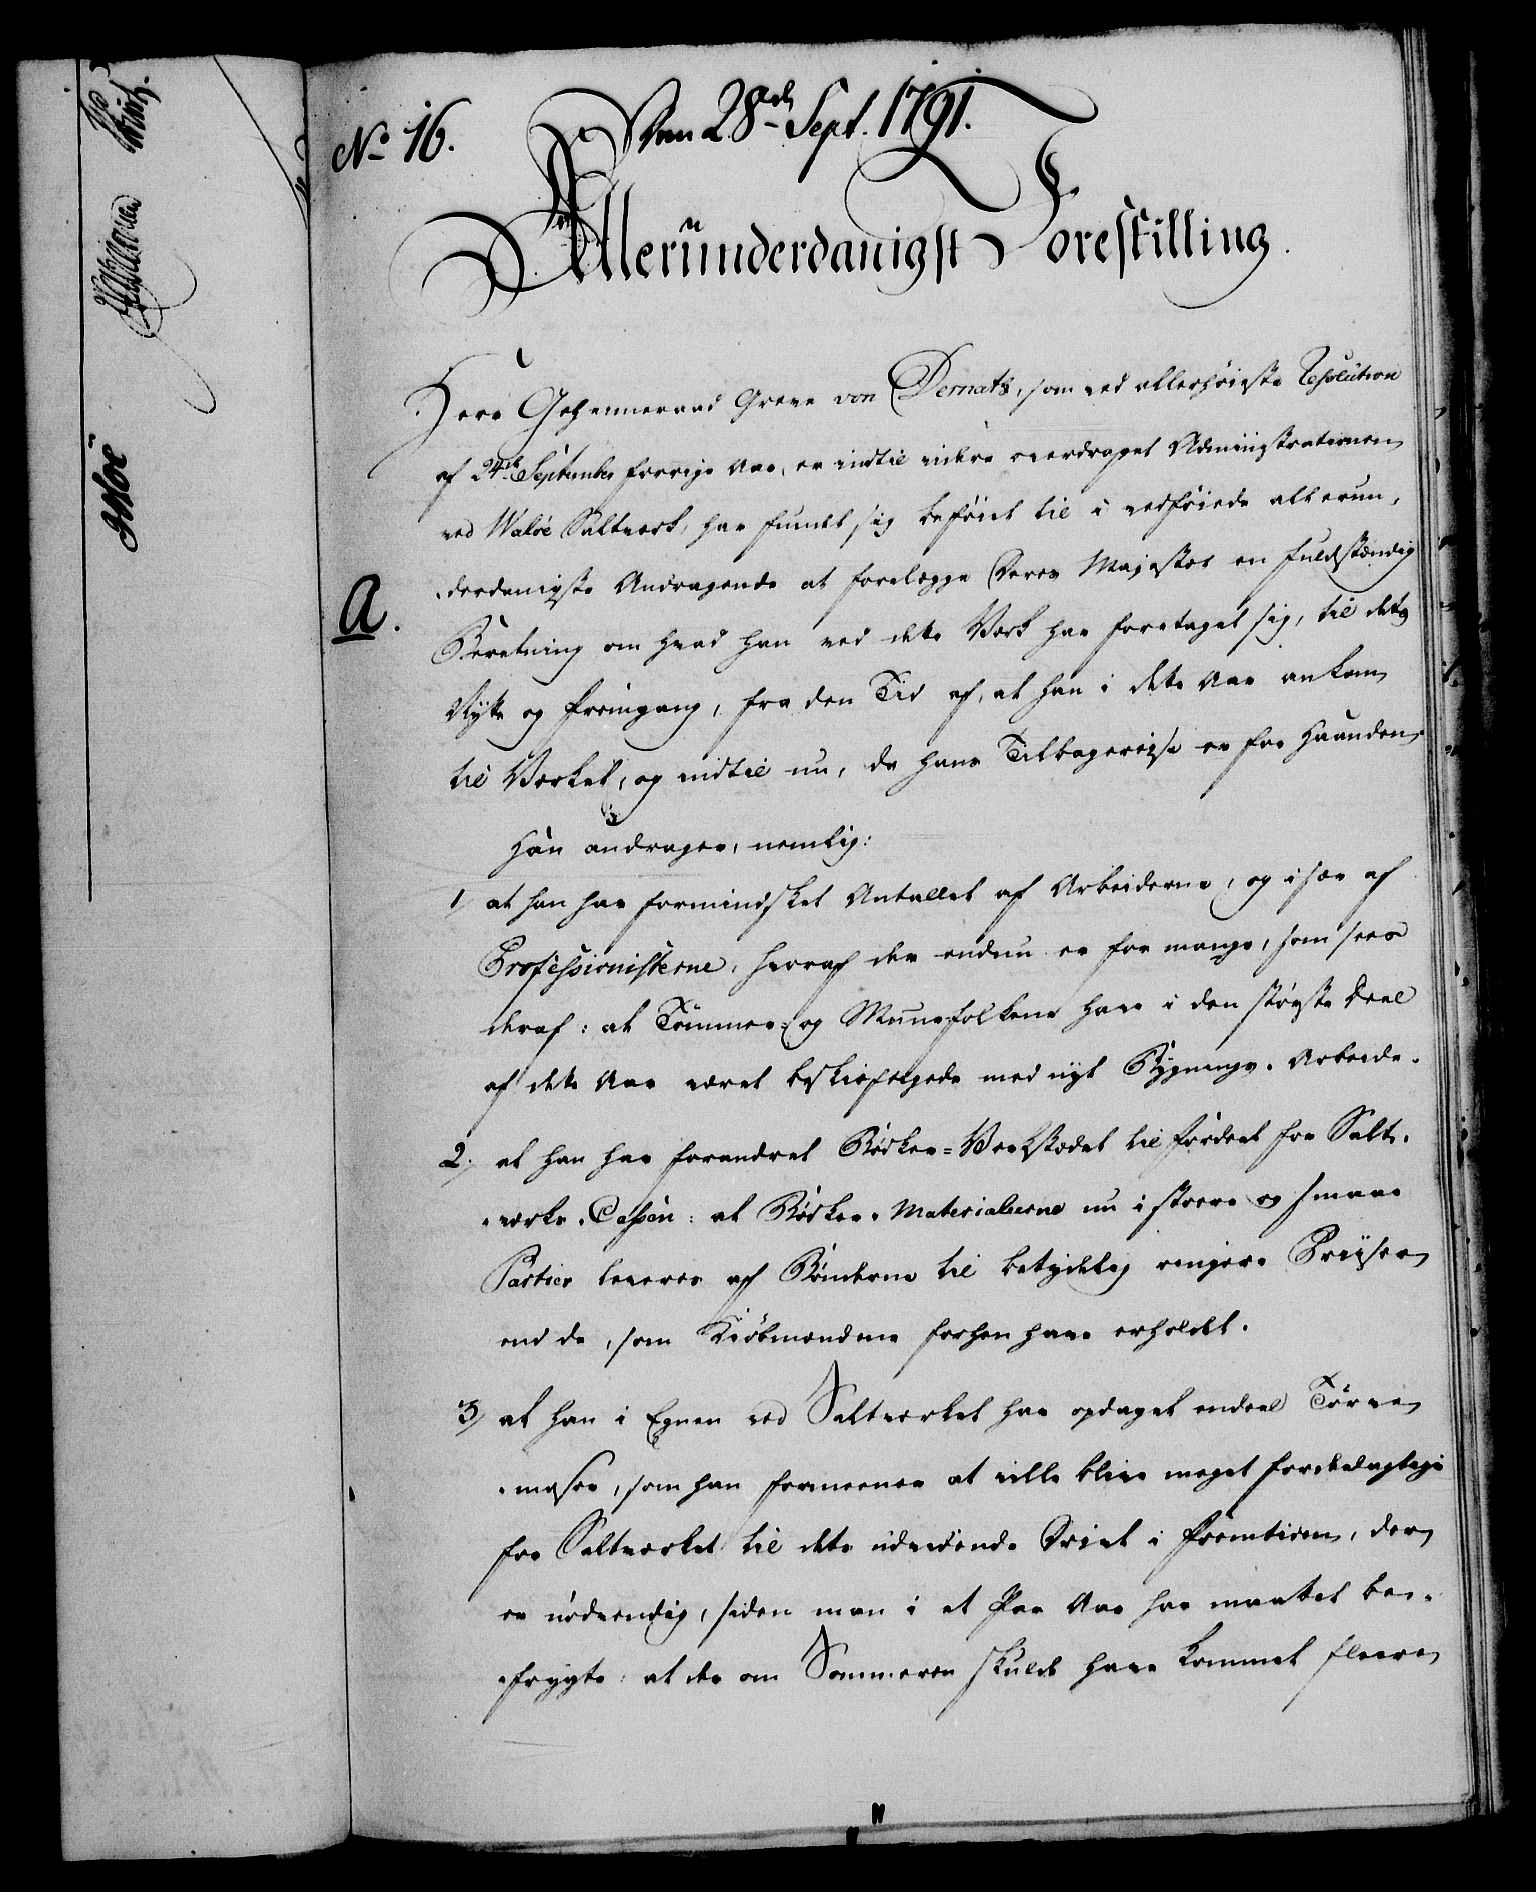 No 16.
Den 28de Sept. 1791.
Allerunderdanigst Forestilling.
Herr Geheimeraad Greve von Dernath, som ved allerhøieste Resolution
af 24de September forrige Aar, er indtil videre overdraget Administrationen
ved Waløe Saltverk, har fundet sig beføiet til i vedføiede allerun-
A.
-derdanigste Andragende at forelegge Deres Majestet en fuldstændig
Beretning om hvad han ved dette Verk har foretaget sig, til dets
Nytte og Fremgang, fra den Tid af, at han i dette Aar ankom
til Verket, og indtil nu, da hans Tilbagereise er for Haanden.
Han andrager, nemlig:
1/ at han har formindsket Antallet af Arbeiderne, og især af
Professionisterne, hvoraf der endnu er for mange, som sees
deraf: at Tømmer- og Muurfolkene have i den største Deel
af dette Aar været beskieftigede med nyt Bygnings-Arbeide.
2/ at han har forandret Bødker-Verkstædet til Fordeel for Salt-
-verks-Cassen: at Bødker-Materialierne nu i store og smaae
Partier leveres af Bønderne til betydelig ringere Priiser
end de, som Kiøbmændene forhen have erholdt.
3/ at han i Egnen ved Saltverket har opdaget endeel Tørve-
-moser, som han formeener at ville blive meget fordeelagtige
for Saltverket til dets udvidende Drivt i Fremtiden, der
er nødvendig, siden man i et Par Aar har maattet be-
-frygte: at der om Sommeren skulde have kommet fleere